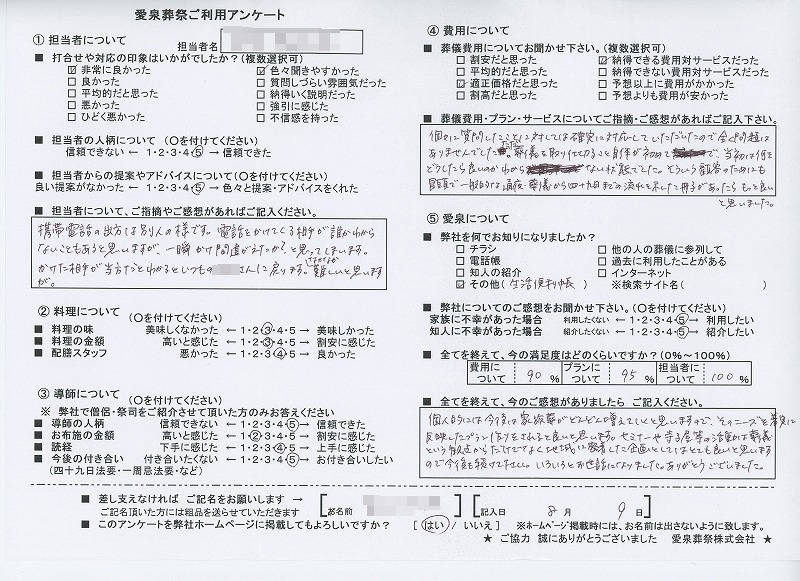 愛泉葬祭ご利用アンケート
① 担当者について
担当者名
■ 打合せや対応の印象はいかがでしたか?(複数選択可)
☑ 非常に良かった ☑ 色々聞きやすかった
□ 良かった □ 質問しづらい雰囲気だった
□ 平均的だと思った □ 納得いく説明だった
□ 悪かった □ 強引に感じた
□ ひどく悪かった □ 不信感を持った
■ 担当者の人柄について (〇を付けてください)
信頼できない ← 1・2・3・4・5 → 信頼できた
■ 担当者からの提案やアドバイスについて(〇を付けてください)
良い提案がなかった ← 1・2・3・4・5 → 色々と提案・アドバイスをくれた
■ 担当者について、ご指摘やご感想があればご記入ください。
携帯電話の出方は別人の様です。電話をかけてくる相手が誰かわから
ないこともあると思いますが、一瞬かけ間違がえたか?と思ってしまいます。
かけた相手が当方だとわかるといつもの さんに戻ります。難しいと思います
が。
② 料理について (〇を付けてください)
■ 料理の味 美味しくなかった ← 1・2・3・4・5 → 美味しかった
■ 料理の金額 高いと感じた ← 1・2・3・4・5 → 割安に感じた
■ 配膳スタッフ 悪かった ← 1・2・3・4・5 → 良かった
③ 導師について (〇を付けてください)
※ 弊社で僧侶・祭司をご紹介させて頂いた方のみお答えください
■ 導師の人柄 信頼できない ← 1・2・3・4・5 → 信頼できた
■ お布施の金額 高いと感じた ← 1・2・3・4・5 → 割安に感じた
■ 読経 下手に感じた ← 1・2・3・4・5 → 上手に感じた
■ 今後の付き合い 付き合いたくない ← 1・2・3・4・5 → お付き合いしたい
(四十九日法要・一周忌法要・など)
④ 費用について
■ 葬儀費用についてお聞かせ下さい。(複数選択可)
□ 割安だと思った ☑ 納得できる費用対サービスだった
□ 平均的だと思った □ 納得できない費用対サービスだった
☑ 適正価格だと思った □ 予想以上に費用がかかった
□ 割高だと思った □ 予想よりも費用が安かった
■ 葬儀費用・プラン・サービスについてご指摘・ご感想があればご記入下さい。
個々に質問したことに対しては確実に対応していただいたので全く問題は
ありませんでした。ただ葬儀を取り仕切ること自体が初めてで、当初は何を
どうしたら良いのかわからない状態でした。そういう顧客のためにも
冒頭で一般的な通夜・葬儀から四十九日までの流れを示した冊子があったらもっと良い
と思いました。
⑤ 愛泉について
■ 弊社を何でお知りになりましたか?
□ チラシ □ 他の人の葬儀に参列して
□ 電話帳 □ 過去に利用したことがある
□ 知人の紹介 □ インターネット
☑ その他( 生活便利帳 ) ※検索サイト名( )
■ 弊社についてのご感想をお聞かせ下さい。(〇を付けてください)
家族に不幸があった場合 利用したくない ← 1・2・3・4・5 → 利用したい
知人に不幸があった場合 紹介したくない ← 1・2・3・4・5 → 紹介したい
■ 全てを終えて、今の満足度はどのくらいですか?(0%~100%)
費用について 90 % プランについて 95 % 担当者について 100 %
■ 全てを終えて、今のご感想がありましたら ご記入ください。
個人的には今後は家族葬がどんどん増えていくと思いますので、そのニーズを着実に
反映したプラン作りをされると良いと思います。セミナーや寺子屋等の活動は葬儀
という観点からだけでなく地域に密着した企画としてはとても良いと思います
ので今後も続けて下さい。いろいろとお世話になりました。ありがとうございました。
■ 差し支えなければ ご記名をお願いします → [お名前 ] [記入日 8 月 9 日]
ご記名頂いた方には粗品を送らせていただきます
■ このアンケートを弊社ホームページに掲載してもよろしいですか? [ はい / いいえ ] ※ホームページ掲載時には、お名前は出さないように致します。
★ ご協力 誠にありがとうございました 愛泉葬祭株式会社 ★